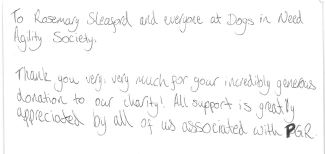 To Rosemary Sleaford and everyone at Dogs in Need
Agility Society.
Thank you very, very much for your incredibly generous
donation to our charity! All support is greatly
appreciated by all of us associated with PGR.